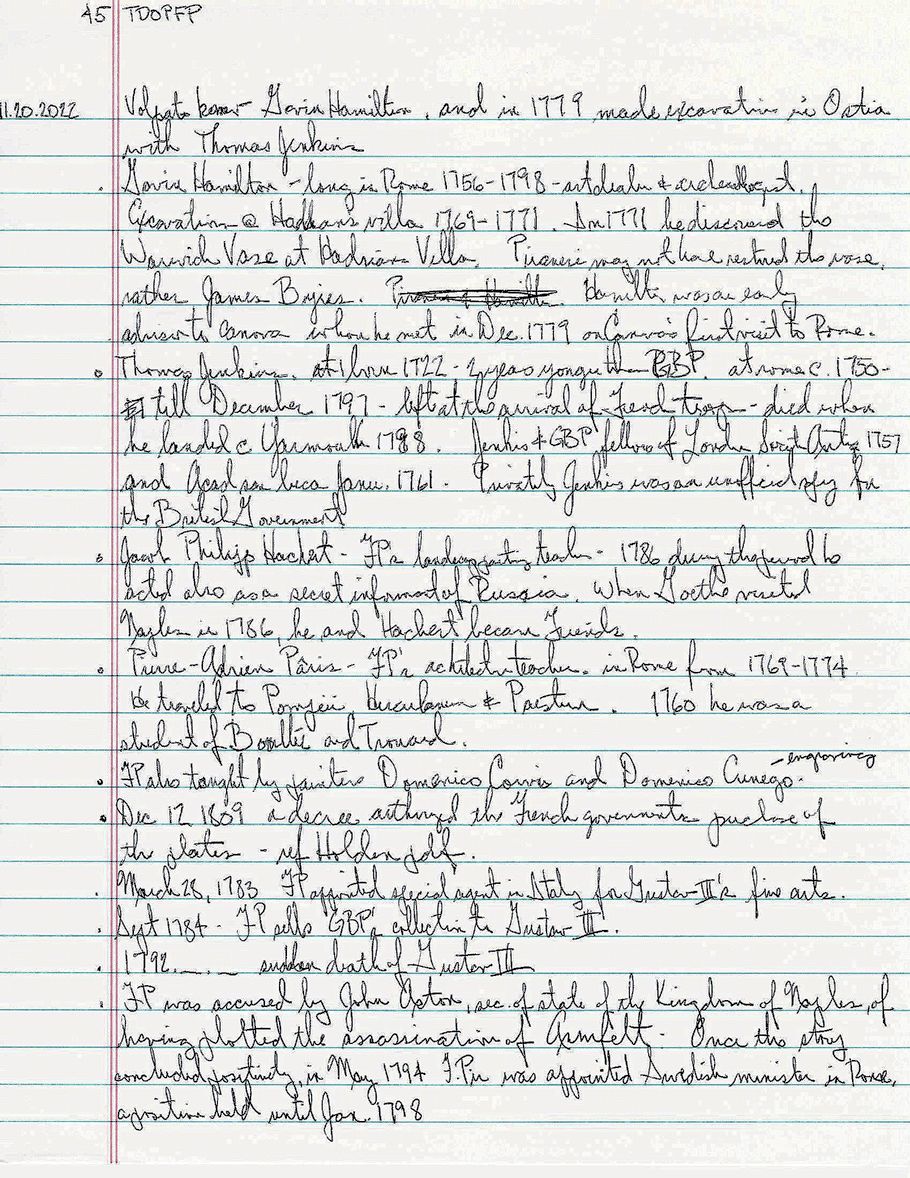 45 TDOPFP
11.20.2022 Volpato knew Gavin Hamilton, and in 1779 made excavation in Ostia
with Thomas Jenkins
. Gavin Hamilton - long in Rome 1756-1798 - art dealer & archeologist.
Excavation @ Hadrians villa 1769-1771. In 1771 he discovered the
Warwick Vase at Hadrians Villa. Piranesi may not have restored the vase,
rather James Byres. Hamilton was an early
advisor to Canova whom he met in Dec. 1779 on Canova's first visit to Rome.
. Thomas Jenkins, born 1722 - 2 years younger than GBP. at Rome c. 1750-
till December 1797 - left at the arrival of French troops - died when
he landed @ Yarmouth 1798. Jenkins & GBP fellows of London 1757
and Acad san Luca Janu. 1761. Privately Jenkins was an unofficial spy for
the British Government
. Jacob Philipp Hackert - FP's landscape painting teacher - 1786 during the period he
acted also as a secret informant of Russia. When Goethe visited
Naples in 1786, he and Hackert became friends.
. Pierre-Adrien Pâris - FP's architecture teacher. in Rome from 1769-1774
he traveled to Pompeii, Herculaneum & Paestum. 1760 he was a
student of Boullée and Trouard.
. FP also taught by painters Domenico Corvi and Domenico Cunego - engraving
. Dec 12 1809 a decree authorized the French governments purchase of
the plates - ref Holden pdf.
. March 28, 1783 FP appointed special agent in Italy for Gustav III's fine arts.
. Sept 1784 - FP sells GBP's collection to Gustav III.
. 1792.__.__ sudden death of Gustav III
. FP was accused by John Acton, sec. of state of the Kingdom of Naples, of
having plotted the assassination of Armfelt. Once the story
concluded positively, in May 1794 F.Pir was appointed Swedish minister in Rome,
a position held until Jan. 1798